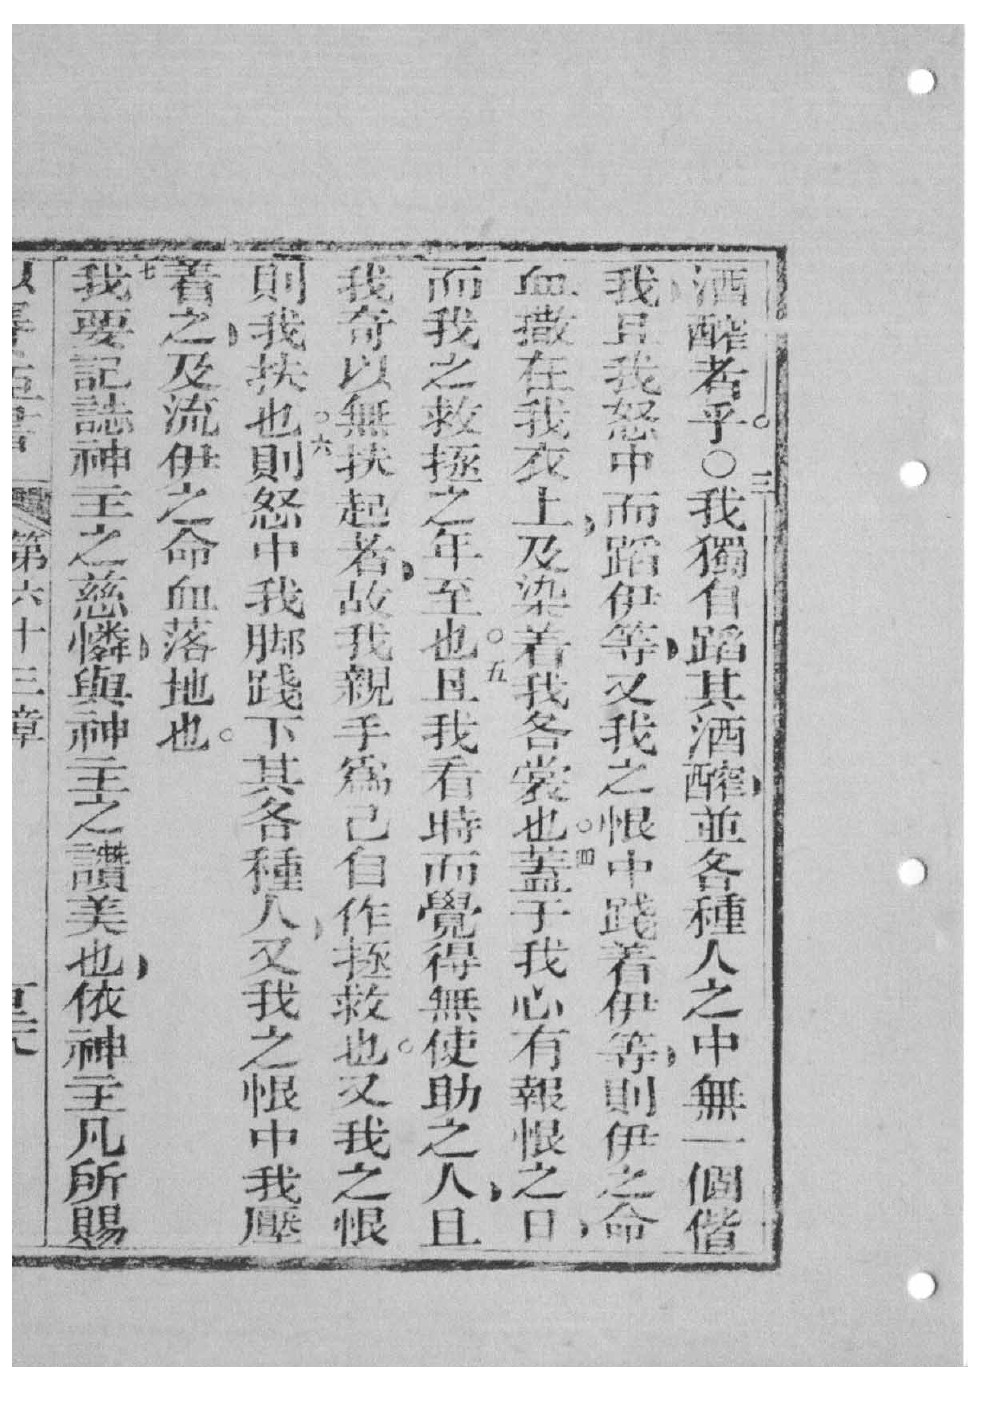 酒醡者乎。○三我獨自蹈其酒醡並各種人之中無一個偕
我且我怒中而蹈伊等又我之恨中踐着伊等則伊之命
血撒在我衣上及染着我各裳也。四蓋于我心有報恨之日
而我之救拯之年至也。五且我看時而覺得無使助之人且
我奇以無扶起者故我親手為己自作拯救也。又我之恨
則我扶也。六則怒中我脚踐下其各種人又我之恨中我壓
着之及流伊之命血落地也。
七我要記誌神主之慈憐與神主之讚美也依神主凡所賜
書 第六十三章